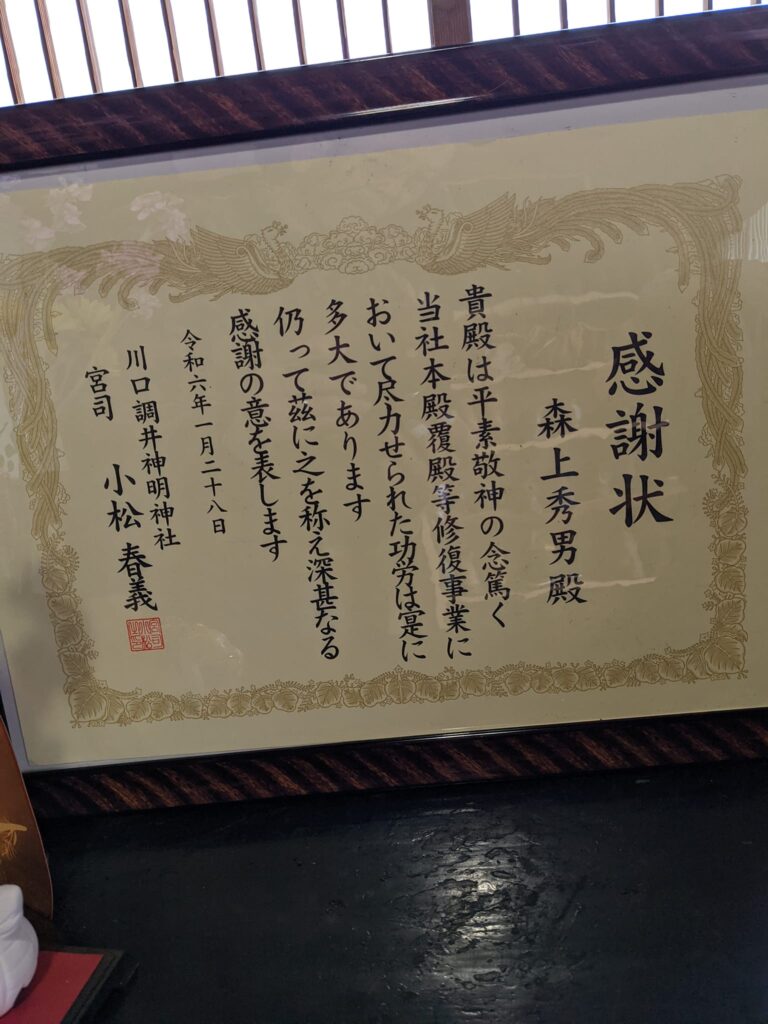 感謝状
森上秀男殿
貴殿は平素敬神の念篤く
当社本殿覆殿等修復事業に
おいて尽力せられた功労は寔に
多大であります
仍って茲に之を称え深甚なる
感謝の意を表します
令和六年一月二十八日
川口調井神明神社
宮司 小松春義